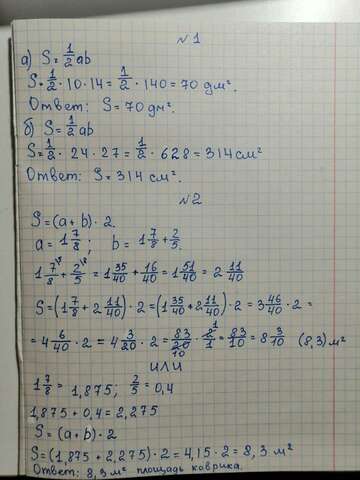 №1
а) S=1/2ab
S=1/2·10·14=1/2·140=70 дм².
Ответ: S=70 дм².
б) S=1/2ab
S=1/2·24·27=1/2·628=314 см²
Ответ: S=314 см².
№2
S=(a+b)·2.
a=1 7/8; b=1 7/8+2/5.
1 7/8+2/5=1 35/40+16/40=1 51/40=2 11/40
S=(1 7/8+2 11/40)·2=(1 35/40+2 11/40)·2=3 46/40·2=
=4 6/40·2=4 3/20·2=83/20·2/1=83/10=8 3/10 (8,3) м²
ИЛИ
1 7/8=1,875; 2/5=0,4
1,875+0,4=2,275
S=(a+b)·2
S=(1,875+2,275)·2=4,15·2=8,3 м²
Ответ: 8,3 м² площадь коврика.